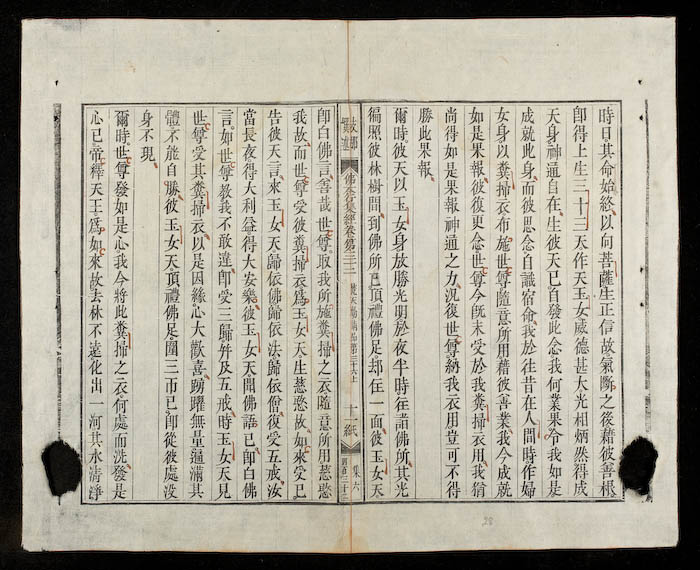 時日其命始終以向菩薩生正信故氣斷之後藉彼善根
卽得上生三十三天作天玉女威德甚大光相炳然得成
天身神通自在生彼天已自發此念我何業果今我如是
成就此身而彼思念自識宿命我於往昔在人間時作婦
女身以糞掃衣布施世尊隨意所用藉彼善業我今成就
如是果報彼復更念世尊今旣未受於我糞掃衣用我猶
尚得如是果報神通之力況復世尊納我衣用豈可不得
勝此果報
爾時彼天以玉女身放勝光明於夜半時往詣佛所其光
徧照彼林樹間到佛所已頂禮佛足却住一面彼玉女天
佛本行集經卷第三十二
十一紙
集六
卽白佛言善哉世尊取我所施糞掃之衣隨意所用慈愍
我故而世尊受彼糞掃衣爲玉女天生慈愍故如來受已
告彼天言來玉女天歸依佛歸依法歸依僧復受五戒汝
當長夜得大利益得大安樂彼玉女天聞佛語已卽白佛
言如世尊教我不敢違卽受三歸幷及五戒時玉女天見
世尊受其糞掃衣以是因緣心大歡喜踴躍無量遍滿其
體不能自勝彼玉女天頂禮佛足圍三帀已卽從彼處沒
身不現
爾時世尊發如是心我今將此糞掃之衣何處而洗發是
心已帝釋天王爲如來故去林不遠化出一河其水清淨